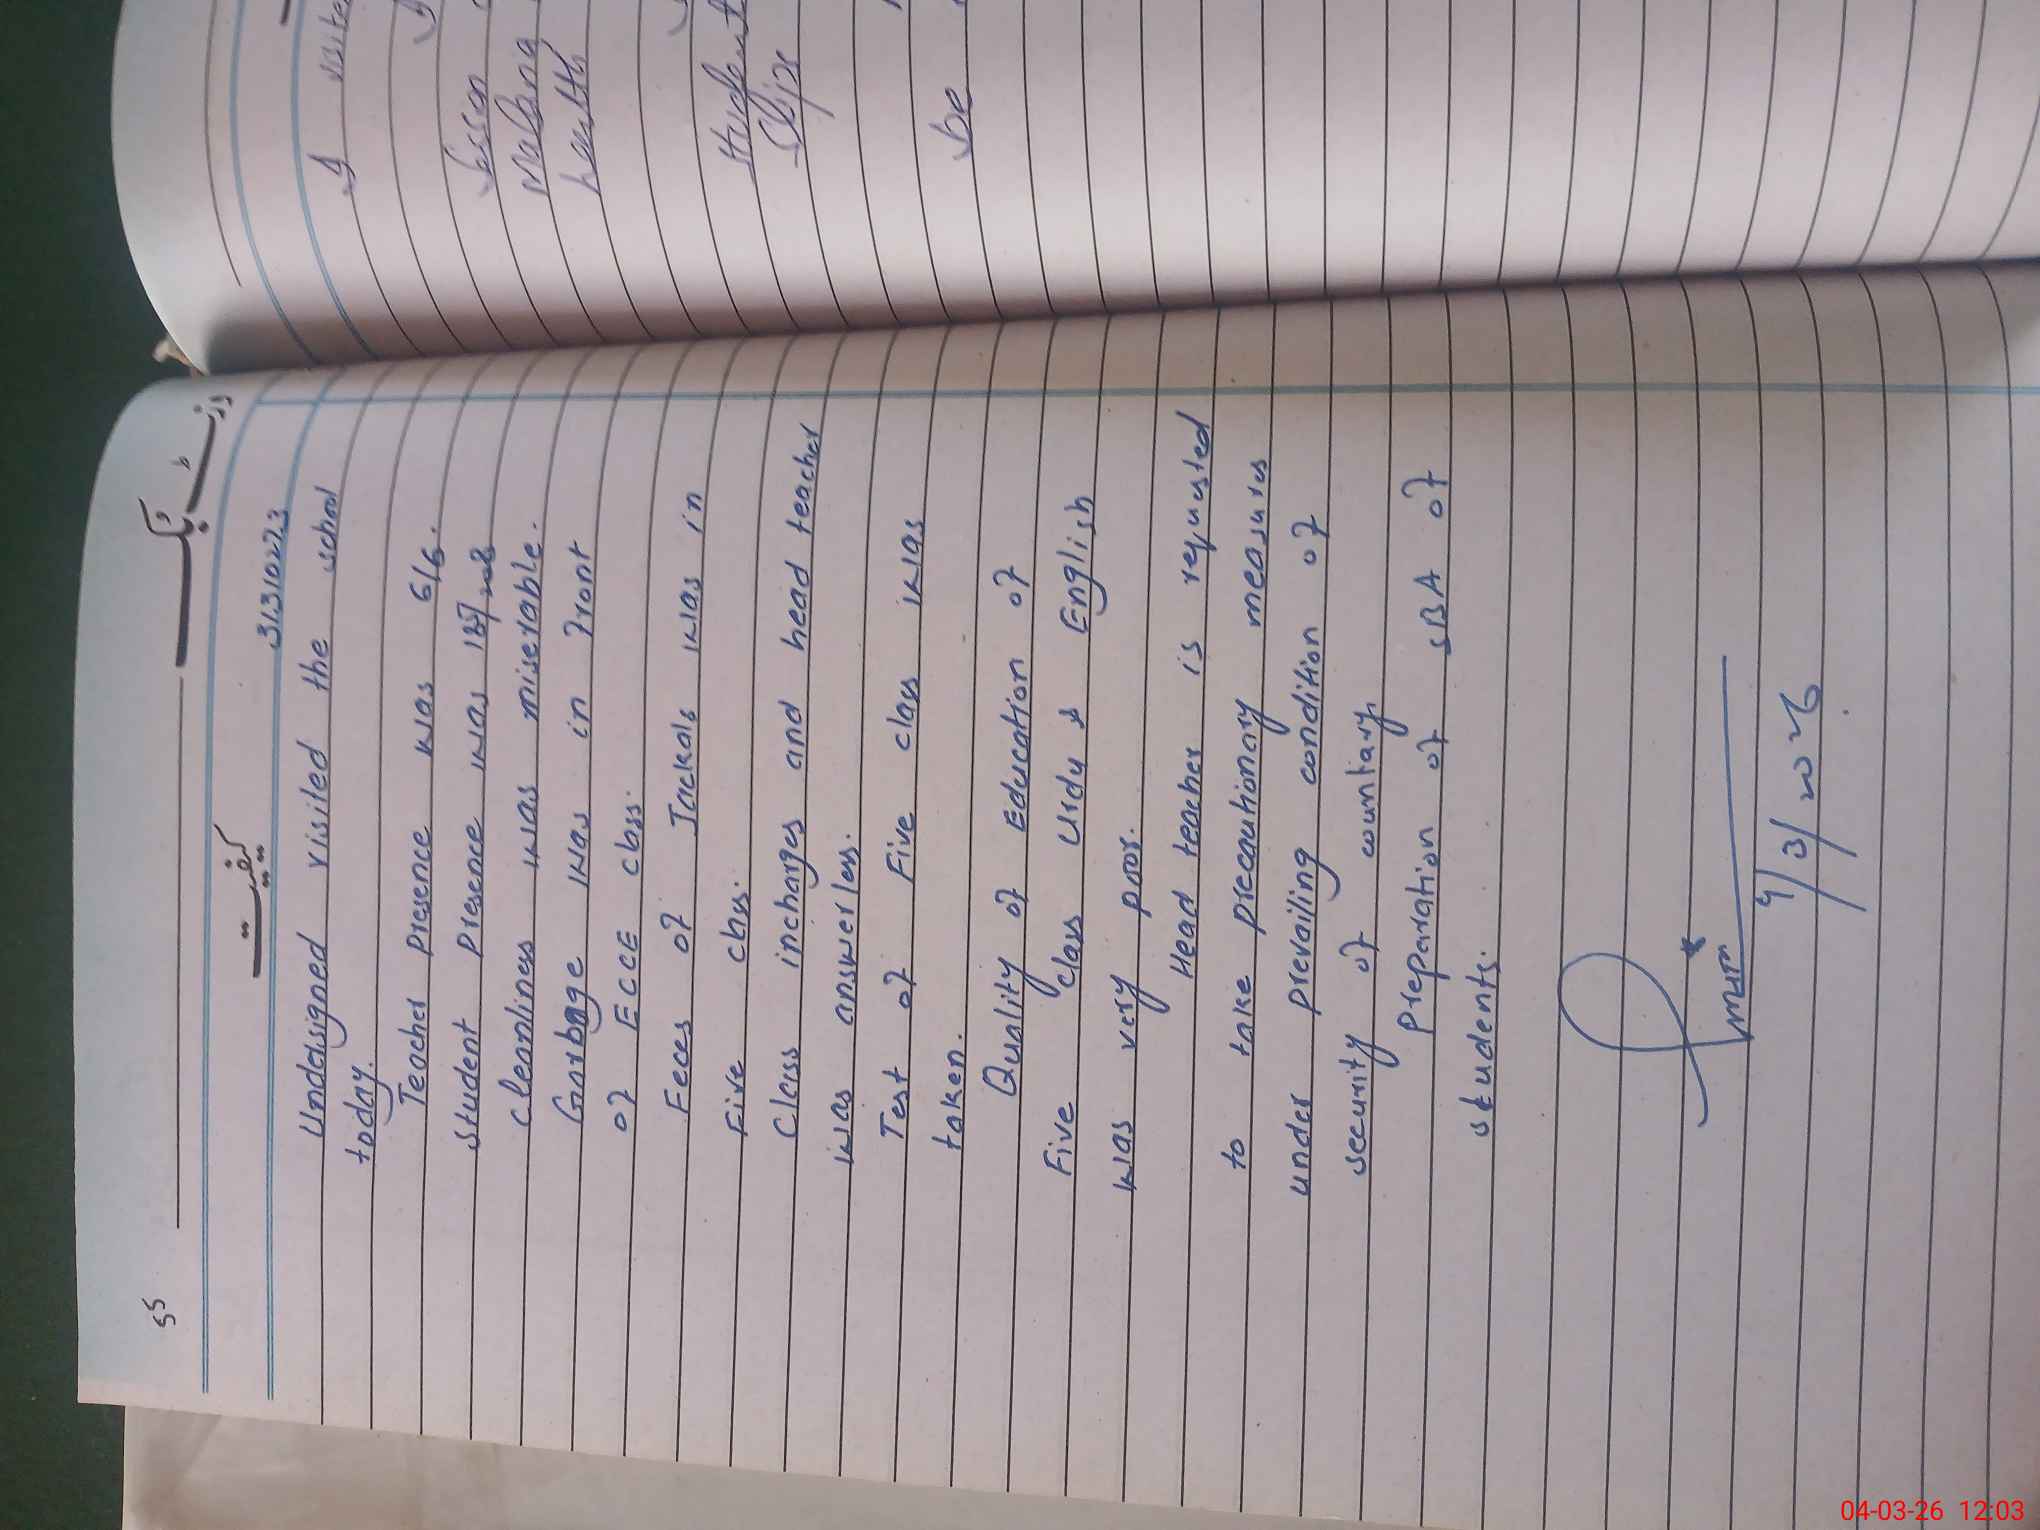 55
وزٹ بک
کیفیت
31310273
Undersigned visited the school
today.
Teacher presence was 6/6.
Student presence was
Cleanliness was miserable.
Garbage was in front
of ECCE class.
Feces of Jackals was in
Five class.
Class incharges and head teacher
was answerless.
Test of Five class was
taken.
Quality of Education of
Five class Urdu & English
was very poor.
Head teacher is requested
to take precautionary measures
under prevailing condition of
security of countary.
Preparation of SBA of
students.
4/3/2026
I visite
lesson
Malang
health
student
slips
be
04-03-26 12:03